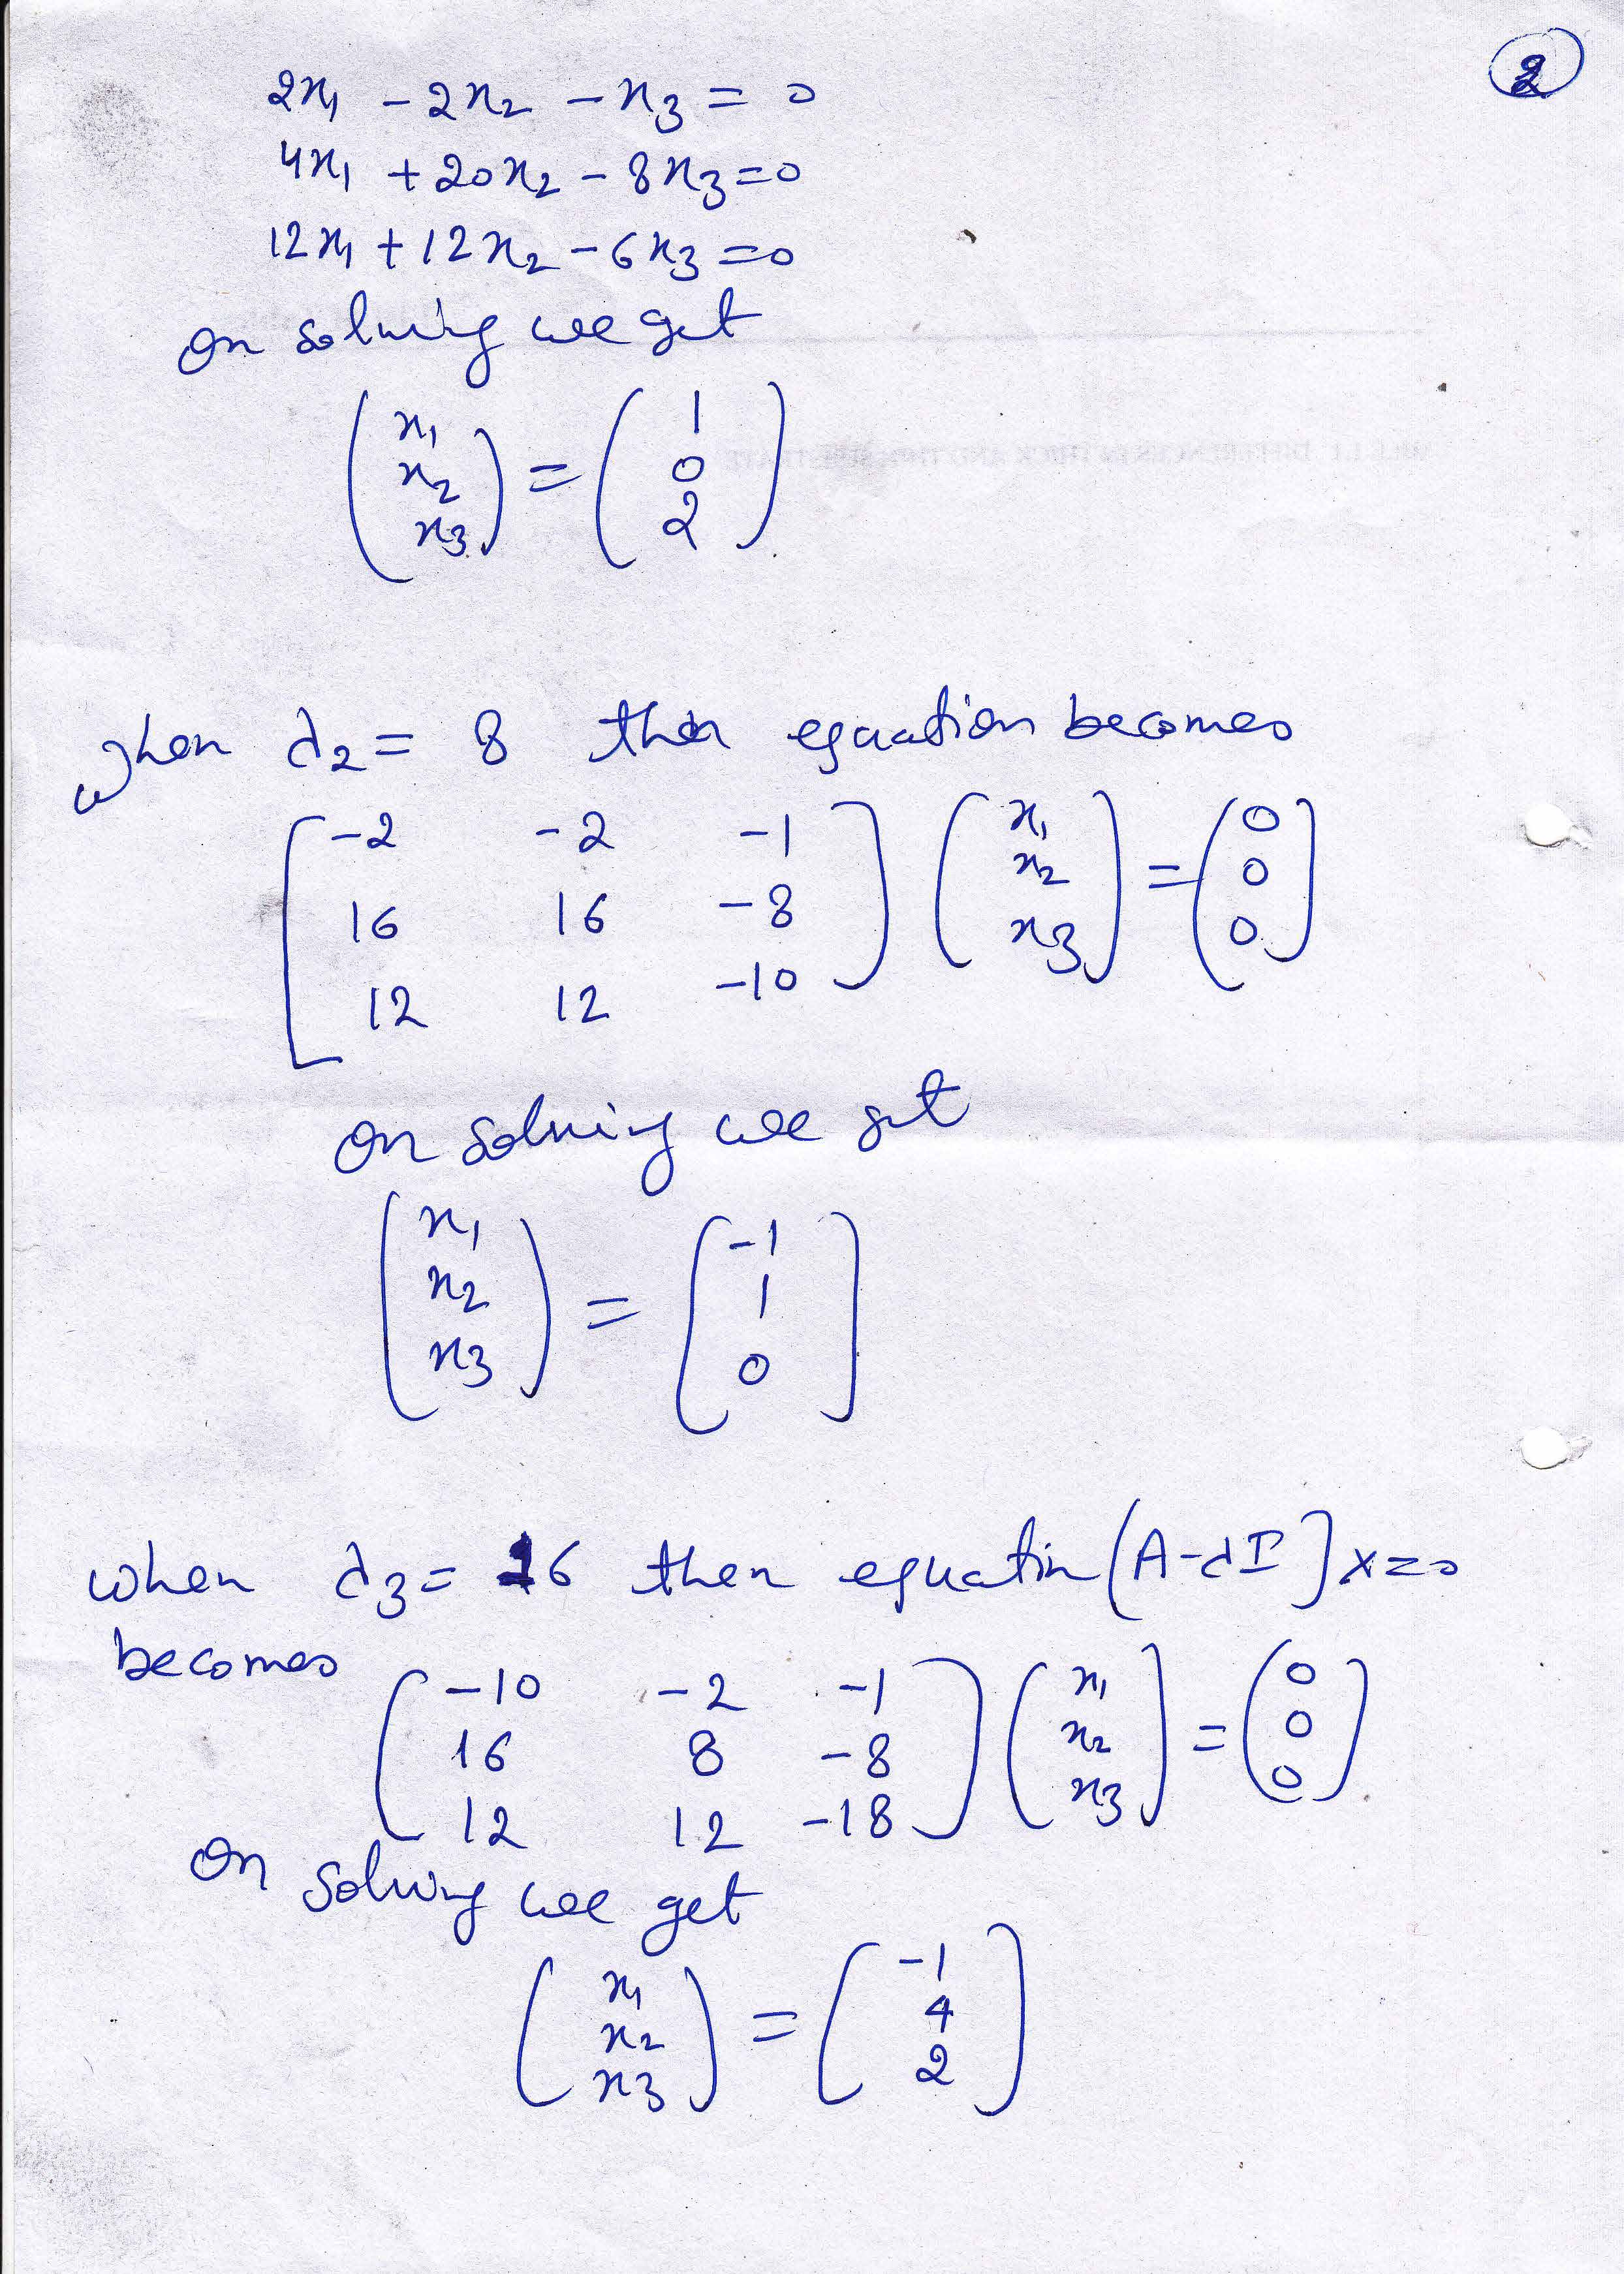 2
2x₁ - 2x₂ - x₃ = 0
4x₁ + 20x₂ - 8x₃ = 0
12x₁ + 12x₂ - 6x₃ = 0
On solving we get
(x₁ x₂ x₃) = (1 0 2)
when λ₂ = 8 then equation becomes
[-2 -2 -1
16 16 -8
12 12 -10] (x₁ x₂ x₃) = (0 0 0)
on solving we get
(x₁ x₂ x₃) = [-1 1 0]
when λ₃ = 16 then equatin [A-λI]x=0
becomes
(-10 -2 -1
16 8 -8
12 12 -18) (x₁ x₂ x₃) = (0 0 0)
On solving we get
(x₁ x₂ x₃) = (-1 4 2)